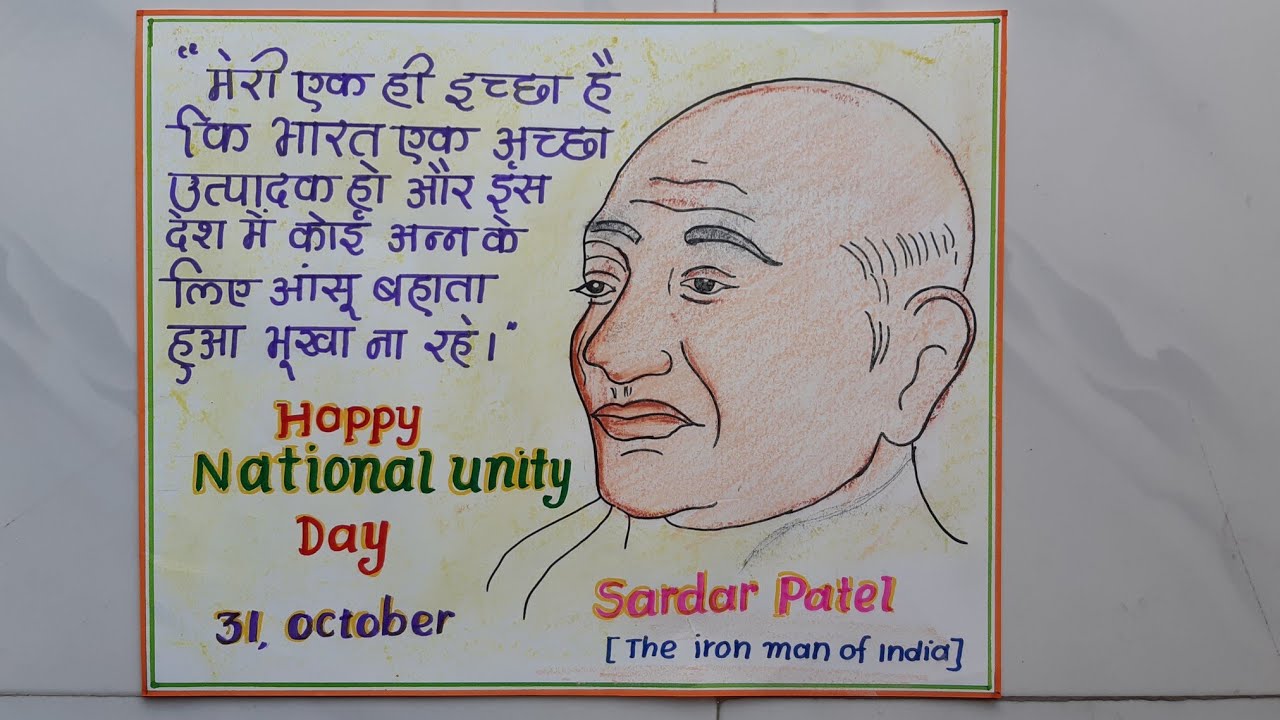 "मेरी एक ही इच्छा है
कि भारत एक अच्छा
उत्पादक हो और इस
देश में कोई अन्न के
लिए आंसू बहाता
हुआ भूखा ना रहे।"
Happy
National unity
Day
31, october
Sardar Patel
[The iron man of India]